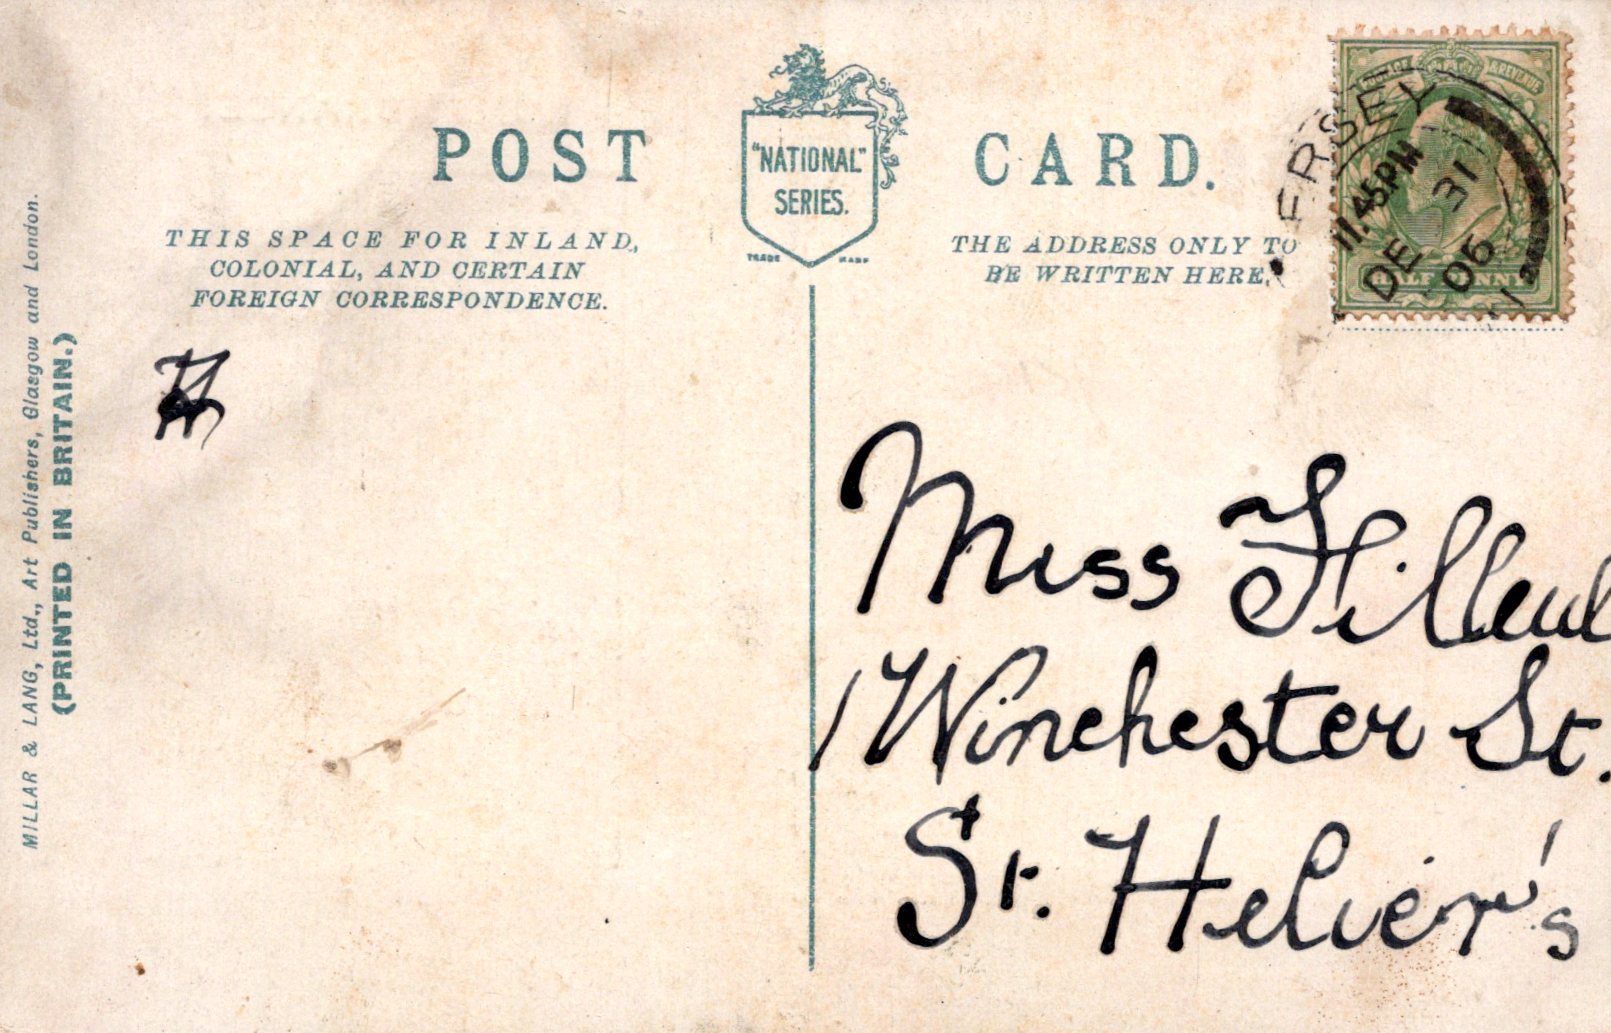 POST CARD.
"NATIONAL"
SERIES.
TRADE MARK
THIS SPACE FOR INLAND,
COLONIAL, AND CERTAIN
FOREIGN CORRESPONDENCE.
THE ADDRESS ONLY TO
BE WRITTEN HERE.
ERSEY
11.45PM
DE 31
06
MILLAR & LANG, Ltd., Art Publishers, Glasgow and London.
(PRINTED IN BRITAIN.)
Miss Filleul
1 Winchester St.
St. Helier's